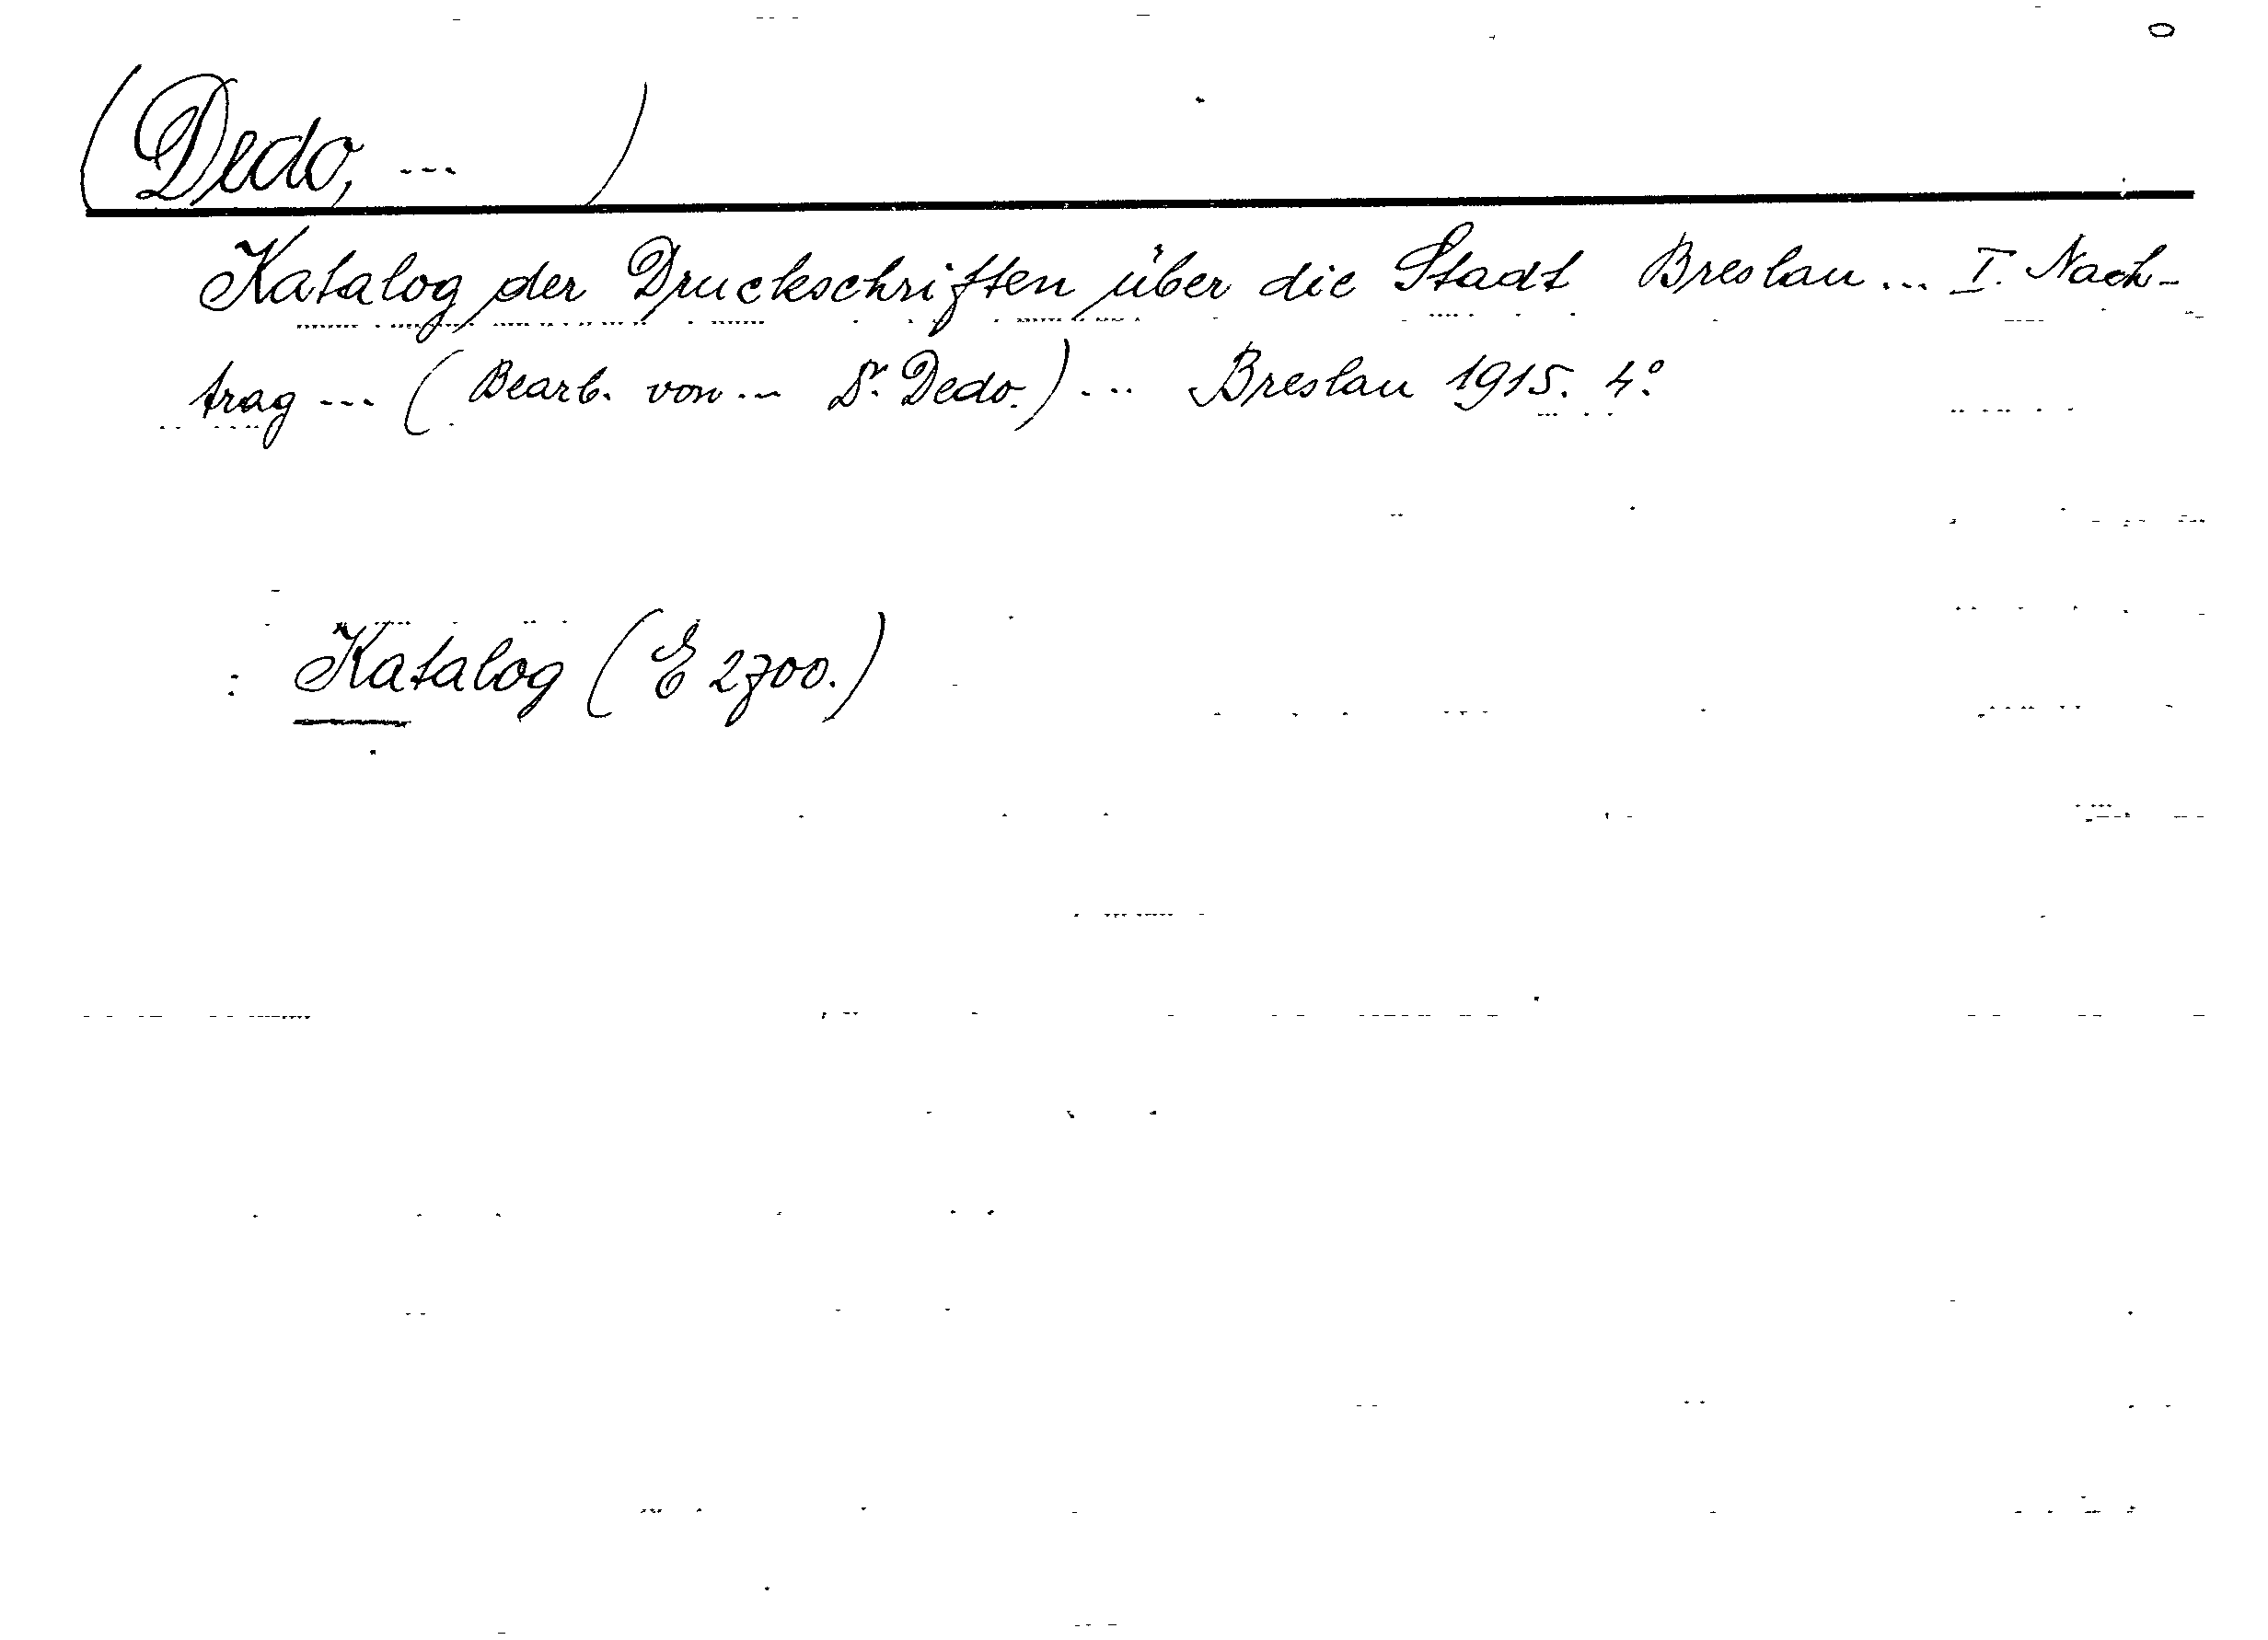 (Dedo, ... )
Katalog der Druckschriften über die Stadt Breslau ... I. Nach-
trag ... (Bearb. von ... Dr. Dedo.) ... Breslau 1915. 4°.
: Katalog (E 2700.)